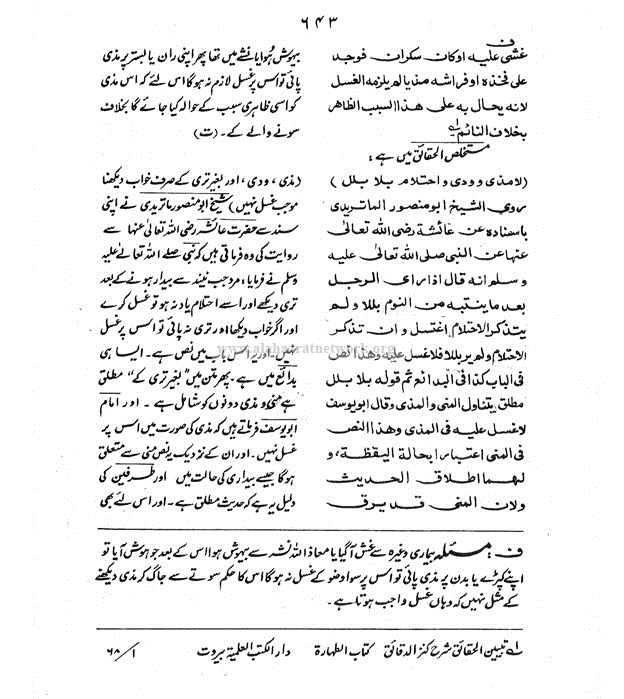 ۶۴۳
ف
غشی علیه اوکان سکران فوجد
علی فخذه اوفراشه مذیالم یلزمه الغسل
لانه یحال به علی هذاالسبب الظاهر
بخلاف النائم۔
بیہوش ہُوا یا نشے میں تھا پھر اپنی ران یا بستر پر مذی
پائی تو اس پر غسل لازم نہ ہوگا اس لئے کہ اس مذی
کو اسی ظاہری سبب کے حوالہ کیا جائے گا بخلاف
سونے والے کے۔ (ت)
مستخلص الحقائق میں ہے :
(لامذی وودی واحتلام بلا بلل)
روی الشیخ ابومنصور الماتریدی
باسناده عن عائشة رضی الله تعالی
عنهاعن النبی صلی الله تعالی علیه
وسلم انه قال اذارای الرجل
بعد ماینتبه من النوم بللا ولم
یتذکرالاحتلام اغتسل وان تذکر
الاحتلام ولم یربللا فلاغسل علیه وهذا النص
فی الباب کذا فی البدائع ثم قوله بلا بلل
مطلق یتناول المنی والمذی وقال ابویوسف
لاغسل علیه فی المذی وهذا النص
فی المنی اعتبارا بحالة الیقظة، و
لهما اطلاق الحدیث
ولان المنی قد یرق
(مذی، ودی، اور بغیر تری کے صرف خواب دیکھنا
موجب غسل نہیں) شیخ ابو منصور ماتریدی نے اپنی
سند سے حضرت عائشہ رضی اللہ تعالیٰ عنہا سے
روایت کی وہ فرماتی ہیں کہ نبی صلے اللہ تعالےٰ علیہ
وسلم نے فرمایا : مرد جب نیند سے بیدار ہونے کے بعد
تری دیکھے اور اسے احتلام یاد نہ ہو تو غسل کرے
اور اگر خواب دیکھا اور تری نہ پائی تو اس پر غسل
نہیں۔ اور یہ اس باب میں نص ہے۔ ایسا ہی
بدائع میں ہے۔ پھر متن میں "بغیر تری کے" مطلق
ہے منی و مذی دونوں کو شامل ہے۔ اور امام
ابو یوسف فرماتے ہیں کہ مذی کی صورت میں اس پر
غسل نہیں۔ اور ان کے نزدیک یہ نص منی سے متعلق
ہوگا جیسے بیداری کی حالت میں اور طرفین کی
دلیل یہ ہے کہ حدیث مطلق ہے۔ اور اس لئے بھی
www.alahazratnetwork.org
ف : مسئلہ بیماری وغیرہ سے غش آگیا یا معاذ اللہ نشہ سے بیہوش ہوا اس کے بعد جو ہوش آیا تو
اپنے کپڑے یا بدن پر مذی پائی تو اس پر سوا وضو کے غسل نہ ہوگا اس کا حکم سوتے سے جاگ کر مذی دیکھنے
کے مثل نہیں کہ وہاں غسل واجب ہوتا ہے۔
لہ تبیین الحقائق شرح کنز الدقائق کتاب الطہارۃ دار الکتب العلمیۃ بیروت ۱/ ۶۸